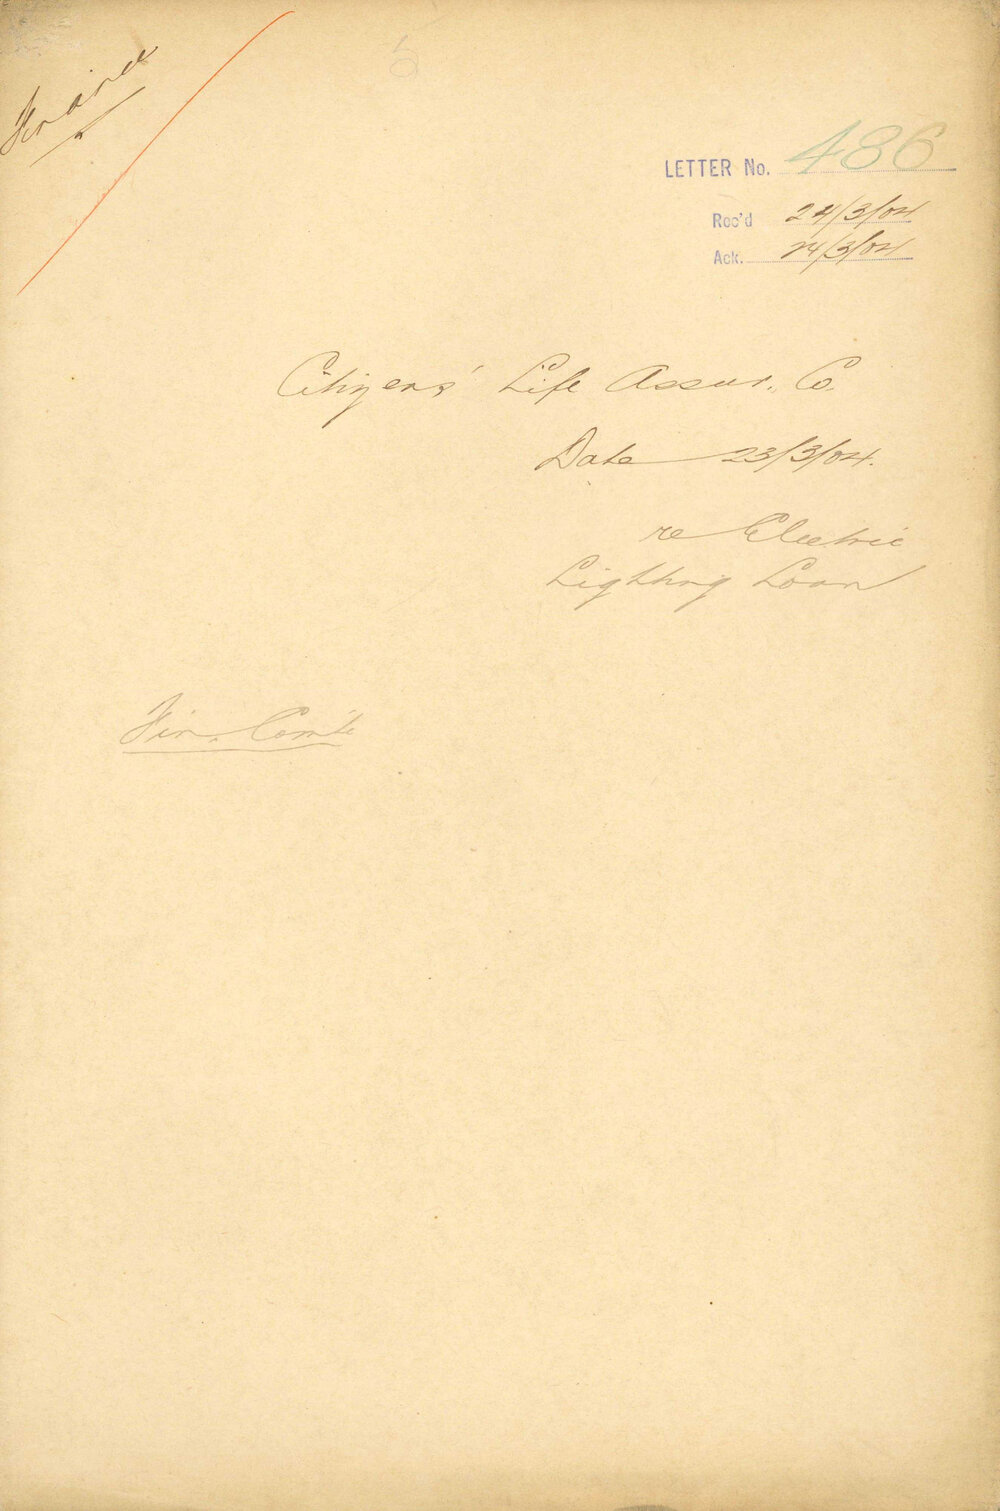 5
LETTER No. 486
Rec'd 24/3/04
Ack. 24/3/04
Citizens' Life Assur. Co.
Date 23/3/04.
re Electric
Lighting Loan
Fin. Comte